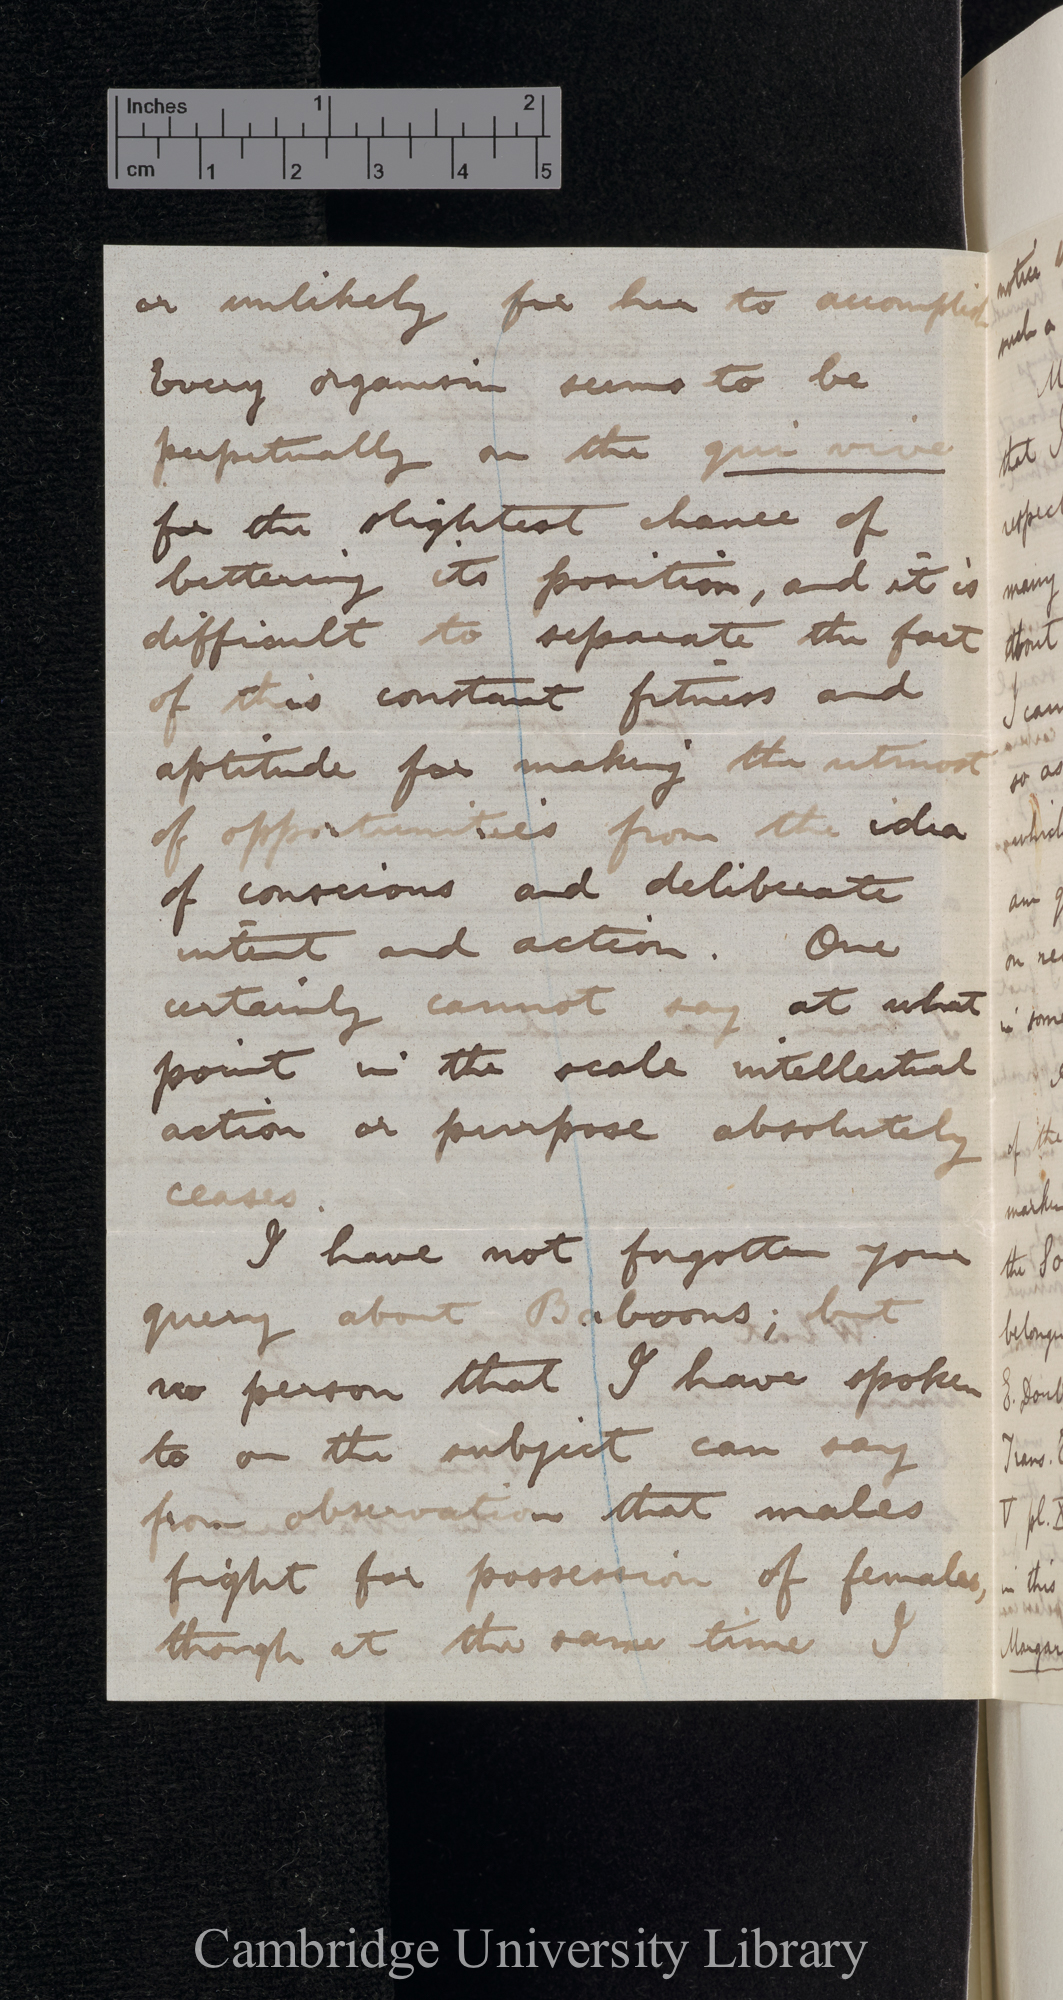 Inches 1 2
cm 1 2 3 4 5
or unlikely for her to accomplish
Every organism seems to be
perpetually on the qui vive
for the slightest chance of
bettering its position, and it is
difficult to separate the fact
of this constant fitness and
aptitude for making the utmost
of opportunities from the idea
of conscious and deliberate
intent and action. One
certainly cannot say at what
point in the scale intellectual
action or purpose absolutely
ceases.
I have not forgotten your
query about Baboons; but
no person that I have spoken
to on the subject can say
from observation that males
fight for possession of females,
though at the same time I
notice
such a
M
that I
respect
many
about
I can
so as
which
am q
on re
in some
of the
marke
the So
belong
E. Doub
Trans. E
V pl. X
in this
Margar
Cambridge University Library